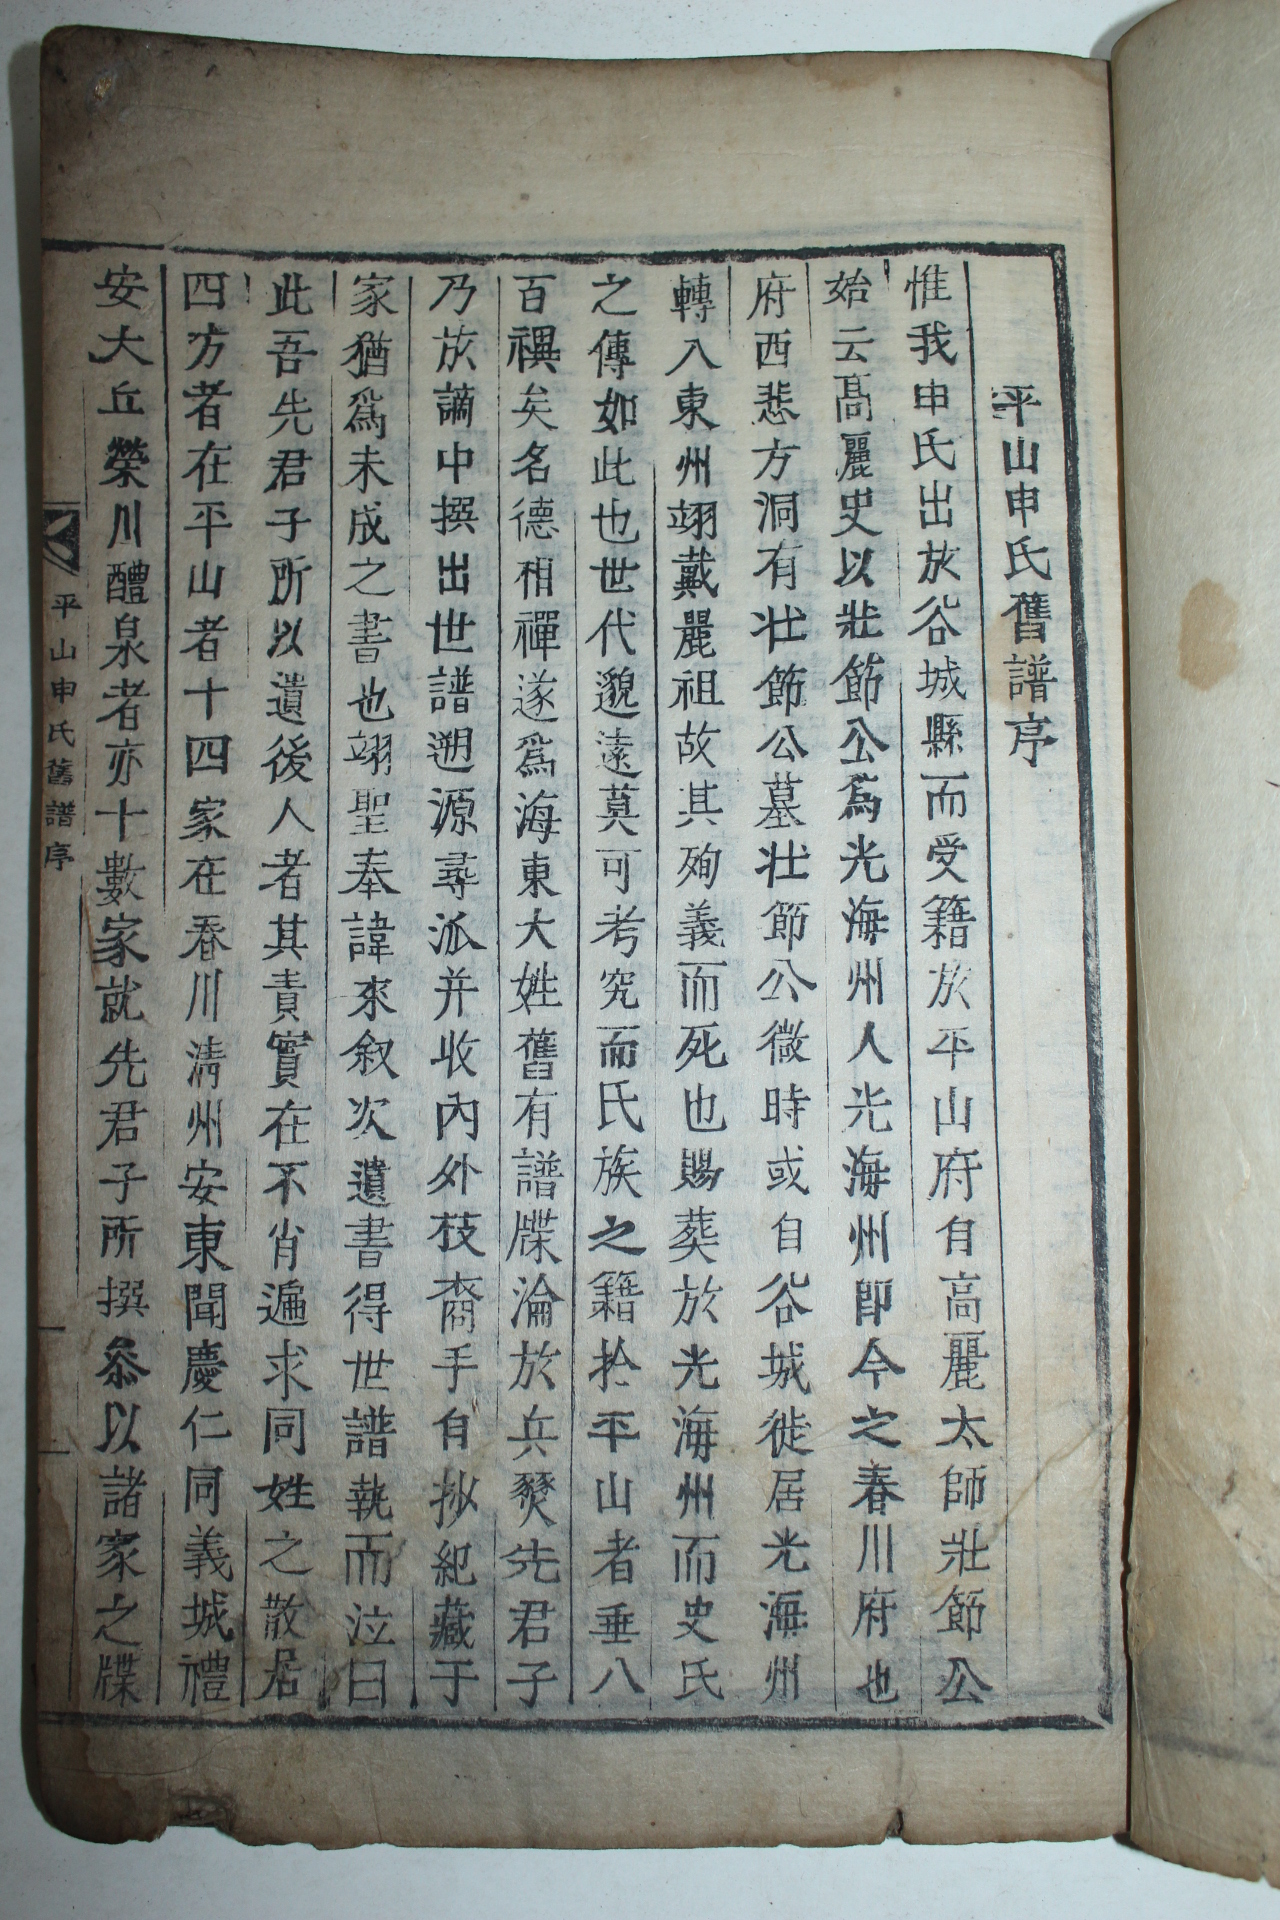 平山申氏舊譜序
惟我申氏出於谷城縣而受籍於平山府自高麗太師壯節公
始云高麗史以壯節公爲光海州人光海州卽今之春川府也
府西悲方洞有壯節公墓壯節公微時或自谷城徙居光海州
轉入東州翊戴麗祖故其殉義而死也賜葬於光海州而史氏
之傳如此也世代邈遠莫可考究而氏族之籍於平山者垂八
百禩矣名德相禪遂爲海東大姓舊有譜牒淪於兵燹先君子
乃於謫中撰出世譜遡源尋派并收內外枝裔手自抄紀藏于
家猶爲未成之書也翊聖奉諱來叙次遺書得世譜執而泣曰
此吾先君子所以遺後人者其責實在不肖遍求同姓之散居
四方者在平山者十四家在春川淸州安東聞慶仁同義城禮
安大丘榮川醴泉者亦十數家就先君子所撰叅以諸家之牒
平山申氏舊譜序
一